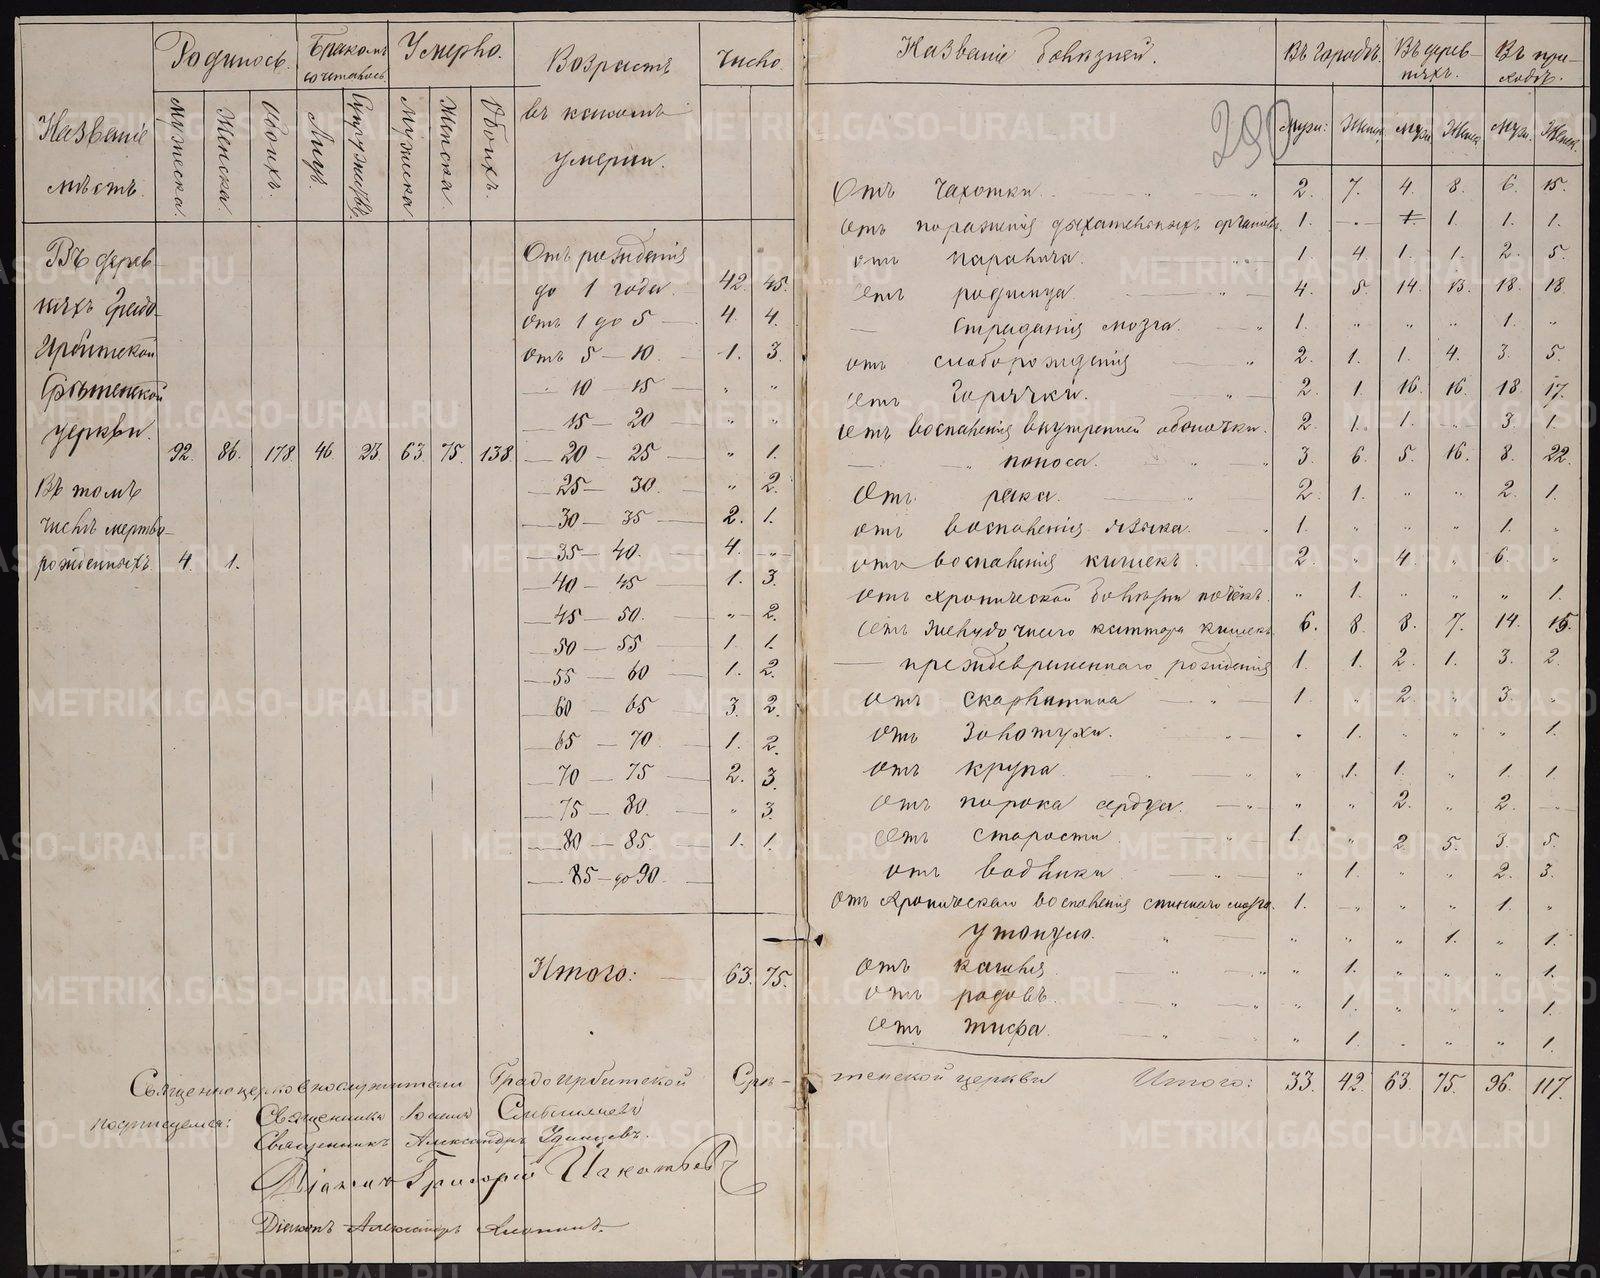 Названіе мѣстъ.
Родилось.
Мужеска.
Женска.
Обоихъ.
Бракомъ сочеталось
Лицъ.
Супружествъ.
Умерло.
Мужеска
Женска.
Обоихъ.
Возрастъ въ какомъ умерли.
Число.
Въ дерев-
няхъ Градо-
Ирбитской
Срѣтенской
церкви.
92. 86. 178. 46. 23. 63. 75. 138.
Въ томъ
числѣ мертво-
рожденныхъ 4. 1.
Отъ рожденія
до 1 года. 42. 45.
отъ 1 до 5 — 4. 4.
отъ 5 — 10. 1. 3.
— 10 — 15 — " "
— 15 — 20 — " "
— 20 — 25 — " 1.
— 25 — 30. — " 2.
— 30 — 35 — 2. 1.
— 35 — 40. — 4. "
— 40 — 45 — 1. 3.
— 45 — 50. — " 2.
— 50 — 55 — 1. 1.
— 55 — 60 — 1. 2.
— 60 — 65 — 3. 2.
— 65 — 70. — 1. 2.
— 70 — 75 — 2. 3.
— 75 — 80. — " 3.
— 80 — 85. — 1. 1.
— 85 — до 90. —
Итого: 63. 75.
Названіе болѣзней.
290
Въ городѣ.
Въ дерев-
няхъ.
Въ при-
ходѣ.
Муж: Женск. Муж. Женск. Муж. Женск.
Отъ чахотки. 2. 7. 4. 8. 6. 15.
Отъ пораженія дыхательныхъ органовъ. 1. — + 1. 1. 1.
отъ паралича. 1. 4. 1. 1. 2. 5.
Отъ родимца 4. 5. 14. 13. 18. 18.
— Страданія мозга. 1. " " " 1. "
отъ слаборожденія 2. 1. 1. 4. 3. 5.
Отъ Горячки. 2. 1. 16. 16. 18. 17.
Отъ воспаленія внутренней оболочки. 2. 1. 1. " 3. 1.
— поноса. 3. 6. 5. 16. 8. 22.
Отъ рака. 2. 1. " " 2. 1.
отъ воспаленія языка. 1. " " " 1. "
отъ воспаленія кишекъ. 2. " 4. " 6. "
отъ хронической болѣзни почекъ. " 1. " " " 1.
Отъ желудочнаго каттара кишекъ 6. 8. 8. 7. 14. 15.
— преждевременнаго рожденія 1. 1. 2. 1. 3. 2.
отъ скарлатина 1. " 2. " 3. "
отъ Золотухи. " 1. " " " 1.
отъ крупа " 1. 1. " 1. 1.
отъ порока сердца. " " 2. " 2. —
Отъ старости 1. " 2. 5. 3. 5.
отъ водянки " 1. " " 2. 3.
отъ хроническаго воспаленія спиннаго мозга. 1. " " " 1. "
утонуло. " " " 1. " 1.
отъ кашля " 1. " " " 1.
отъ родовъ. " 1. " " " 1.
Отъ тифа. " 1. " " " 1.
Священноцерковнослужители Градо Ирбитской Срѣ-
тенской церкви Итого: 33. 42. 63. 75. 96. 117.
подписуемся: Священникъ
Священникъ Александръ Удинцевъ.
Діаконъ Григорій
Діаконъ Александръ
METRIKI.GASO-URAL.RU